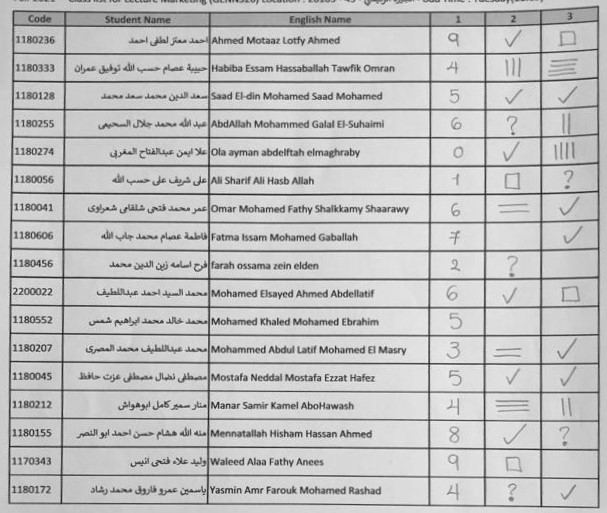 Class list for Lecture Marketing (GENN326) Location :
Code Student Name English Name 1 2 3
1180236 احمد معتز لطفى احمد Ahmed Motaaz Lotfy Ahmed 9 ✓ □
1180333 حبيبة عصام حسب الله توفيق عمران Habiba Essam Hassaballah Tawfik Omran 4 ||| ☰
1180128 سعد الدين محمد سعد محمد Saad El-din Mohamed Saad Mohamed 5 ✓ ✓
1180255 عبد الله محمد جلال السحيمى AbdAllah Mohammed Galal El-Suhaimi 6 ? ||
1180274 علا ايمن عبدالفتاح المغربى Ola ayman abdelftah elmaghraby 0 ✓ ||||
1180056 على شريف على حسب الله Ali Sharif Ali Hasb Allah 1 □ ?
1180041 عمر محمد فتحى شلقامى شعراوى Omar Mohamed Fathy Shalkkamy Shaarawy 6 = ✓
1180606 فاطمة عصام محمد جاب الله Fatma Issam Mohamed Gaballah 7 ✓
1180456 فرح اسامه زين الدين محمد farah ossama zein elden 2 ?
2200022 محمد السيد احمد عبداللطيف Mohamed Elsayed Ahmed Abdellatif 6 ✓ □
1180552 محمد خالد محمد ابراهيم شمس Mohamed Khaled Mohamed Ebrahim 5
1180207 محمد عبداللطيف محمد المصرى Mohammed Abdul Latif Mohamed El Masry 3 = ✓
1180045 مصطفى نضال مصطفى عزت حافظ Mostafa Neddal Mostafa Ezzat Hafez 5 ✓ ✓
1180212 منار سمير كامل ابوهواش Manar Samir Kamel AboHawash 4 ☰ ||
1180155 منه الله هشام حسن احمد ابو النصر Mennatallah Hisham Hassan Ahmed 8 ✓ ?
1170343 وليد علاء فتحى انيس Waleed Alaa Fathy Anees 9 □
1180172 ياسمين عمرو فاروق محمد رشاد Yasmin Amr Farouk Mohamed Rashad 4 ? ✓